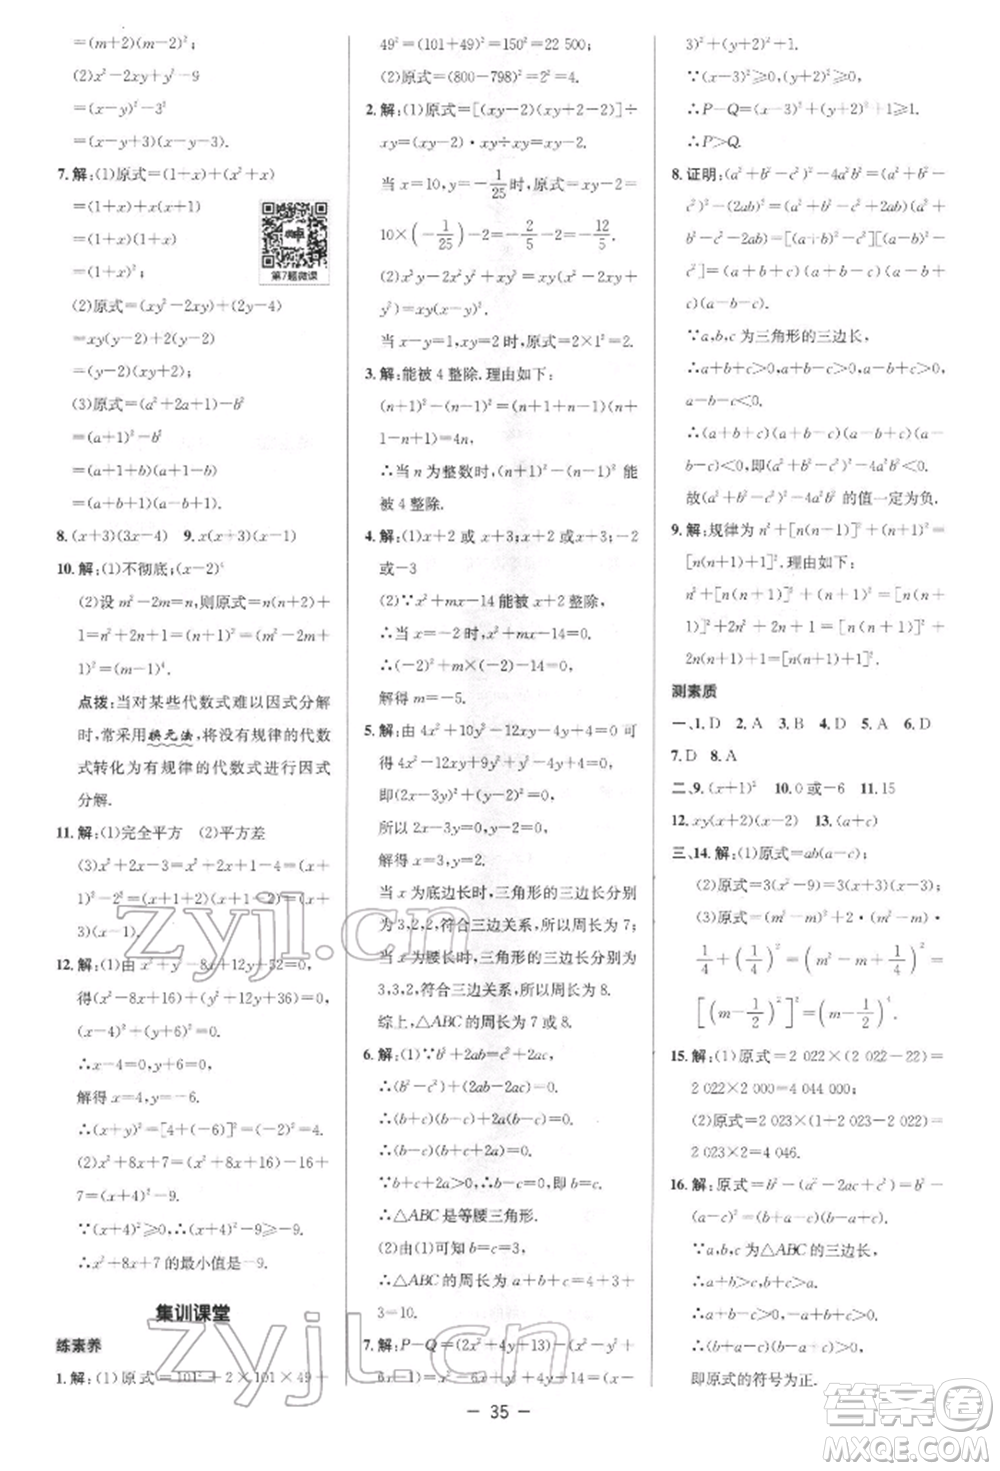 =(m+2)(m-2)².
(2)x²-2xy+y²-9
=(x-y)²-3²
=(x-y+3)(x-y-3).
7.解:(1)原式=(1+x)+(x²+x)
=(1+x)+x(x+1)
=(1+x)(1+x)
=(1+x)².
第7题微课
(2)原式=(xy²-2xy)+(2y-4)
=xy(y-2)+2(y-2)
=(y-2)(xy+2).
(3)原式=(a²+2a+1)-b²
=(a+1)²-b²
=(a+1+b)(a+1-b)
=(a+b+1)(a-b+1).
8.(x+3)(3x-4)  9.x(x+3)(x-1)
10.解:(1)不彻底;(x-2)⁴
(2)设m²-2m=n,则原式=n(n+2)+
1=n²+2n+1=(n+1)²=(m²-2m+
1)²=(m-1)⁴.
点拨:当对某些代数式难以因式分解
时,常采用换元法,将没有规律的代数
式转化为有规律的代数式进行因式
分解.
11.解:(1)完全平方  (2)平方差
(3)x²+2x-3=x²+2x+1-1-3=(x+
1)²-2²=(x+1+2)(x+1-2)=(x+
3)(x-1).
12.解:(1)由x²+y²-8x+12y+52=0,得
(x²-8x+16)+(y²+12y+36)=0,
(x-4)²+(y+6)²=0.
∴x-4=0,y+6=0.
解得x=4,y=-6.
∴(x+y)²=[4+(-6)]²=(-2)²=4.
(2)x²+8x+7=(x²+8x+16)-16+
7=(x+4)²-9.
∵(x+4)²≥0,∴(x+4)²-9≥-9.
∴x²+8x+7的最小值是-9.
集训课堂
练素养
1.解:(1)原式=101²+2×101×49+
49²=(101+49)²=150²=22 500;
(2)原式=(800-798)²=2²=4.
2.解:(1)原式=[(xy-2)(xy+2-2)]÷
xy=(xy-2)·xy÷xy=xy-2.
当x=10,y=-1/25时,原式=xy-2=
10×(-1/25)-2=-2/5-2=-12/5.
(2)x³y-2x²y²+xy³=xy(x²-2xy+
y²)=xy(x-y)².
当x-y=1,xy=2时,原式=2×1²=2.
3.解:能被4整除.理由如下:
(n+1)²-(n-1)²=(n+1+n-1)(n+
1-n+1)=4n,
∴当n为整数时,(n+1)²-(n-1)²能
被4整除.
4.解:(1)x+2或x+3;x+2或x+3;-2
或-3
(2)∵x²+mx-14能被x+2整除,
∴当x=-2时,x²+mx-14=0.
∴(-2)²+m×(-2)-14=0,
解得m=-5.
5.解:由4x²+10y²-12xy-4y+4=0可
得4x²-12xy+9y²+y²-4y+4=0,
即(2x-3y)²+(y-2)²=0,
所以2x-3y=0,y-2=0,
解得x=3,y=2.
当x为底边长时,三角形的三边长分别
为3,2,2,符合三边关系,所以周长为7;
当x为腰长时,三角形的三边长分别为
3,3,2,符合三边关系,所以周长为8.
综上,△ABC的周长为7或8.
6.解:(1)∵b²+2ab=c²+2ac,
∴(b²-c²)+(2ab-2ac)=0.
∴(b+c)(b-c)+2a(b-c)=0.
∴(b-c)(b+c+2a)=0.
∵b+c+2a≠0,∴b-c=0.∴b=c.
∴△ABC是等腰三角形.
(2)由(1)可知b=c=3,
∴△ABC的周长为a+b+c=4+3
+3=10.
7.解:P-Q=(2x²+4y+13)-(x²-y²+
6x-1)=x²-6x+y²+4y+14=(x-
3)²+(y+2)²+1.
∵(x-3)²≥0,(y+2)²≥0,
∴P-Q=(x-3)²+(y+2)²+1≥1.
∴P>Q.
8.证明:(a²+b²-c²)²-4a²b²=(a²+b²
-c²)²-(2ab)²=(a²+b²-c²+
2ab)(a²+b²-c²-2ab)=[(a+b)²-
c²][(a-b)²-c²]=(a+b+c)(a+b-
c)(a-b+c)(a-b-c).
∵a,b,c为三角形的三边长,
∴a+b+c>0,a+b-c>0,a-b+c>0,
a-b-c<0.
∴(a+b+c)(a+b-c)(a-b+c)(a-
b-c)<0,即(a²+b²-c²)²-4a²b²<0.
故(a²+b²-c²)²-4a²b²的值一定为负.
9.解:规律为n²+[n(n+1)]²+(n+1)²=
[n(n+1)+1]².理由如下:
n²+[n(n+1)]²+(n+1)²=[n(n+
1)]²+2n²+2n+1=[n(n+1)]²+
2n(n+1)+1=[n(n+1)+1]².
测素质
一、1.D  2.A  3.B  4.D  5.A  6.D
7.D  8.A
二、9.(x+1)²  10.0或-6  11.15
12.xy(x+2)(x-2)  13.(a+c)
三、14.解:(1)原式=ab(a-c);
(2)原式=3(x²-9)=3(x+3)(x-3);
(3)原式=(m²-m)²+2·(m²-m)·
1/4+(1/4)²=(m²-m+1/4)²=
[(m-1/2)²]²=(m-1/2)⁴.
15.解:(1)原式=2 022×(2 022-22)=
2 022×2 000=4 044 000;
(2)原式=2 023×(1+2 023-2 022)=
2 023×2=4 046.
16.解:原式=b²-(a²-2ac+c²)=b²-
(a-c)²=(b+a-c)(b-a+c).
∵a,b,c为△ABC的三边长,
∴a+b>c,b+c>a.
∴a+b-c>0,b+c-a>0.
∴(b+a-c)(b-a+c)>0,
即原式的符号为正.
- 35 -
zyjl.cn
zyjl.cn
答案圈
MXQE.COM